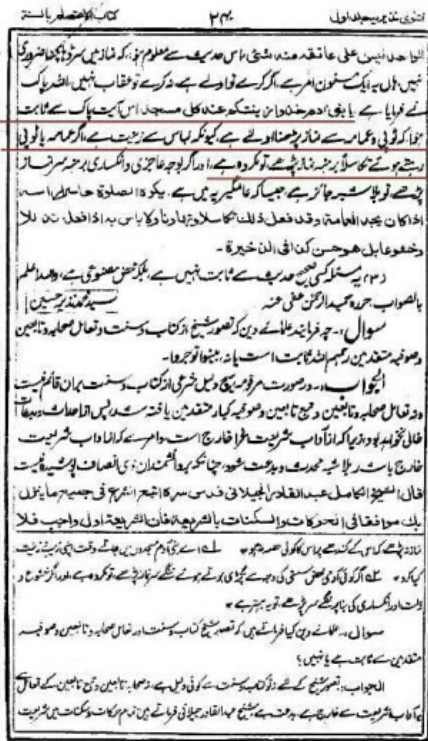 فتاویٰ نذیریہ جلد اول ۲۴۰ کتاب الاعتصام بالسنۃ
الواحد لیس علی عاتقہ منہ شئ، اس حدیث سے معلوم ہوا، کہ نماز میں سر ڈھانکنا ضروری
نہیں ہاں یہ ایک مسنون امر ہے، اگر کرے تو اولیٰ ہے، نہ کرے تو عقاب نہیں، اللہ پاک
نے فرمایا ہے، یا بنی ادم خذوا زینتکم عند کل مسجد اس آیت پاک سے ثابت
ہوا کہ ٹوپی و عمامہ سے نماز پڑھنا اولیٰ ہے، کیونکہ لباس سے زینت ہے، اگر عمامہ یا ٹوپی
رہتے ہوئے تکاسلاً برہنہ نماز پڑھے، تو مکروہ ہے، اور اگر بوجہ عاجزی و انکساری برہنہ سر نماز
پڑھے، تو بلا شبہ جائز ہے، جیسا کہ عالمگیریہ میں ہے، یکرہ الصلوٰۃ حاسراً راسہ
اذا کان یجد العمامۃ وقد فعل ذلک تکاسلا وتہاونا ولا باس بہ اذا فعلہ تذللا
وخشوعا بل ھو حسن کذا فی الذخیرۃ -
یہ مسئلہ کسی صحیح حدیث سے ثابت نہیں ہے، بلکہ محض مصنوعی ہے، واللہ اعلم
بالصواب، حررہ حمید الرحمٰن عفی عنہ سید محمد نذیر حسین
سوال :- چہ فرمایند علمائے دین کہ تصور شیخ از کتاب و سنت و تعامل صحابہ و تابعین
و صوفیہ متقدمین رحمہم اللہ ثابت است یا نہ، بینوا توجروا -
الجواب :- در صورت مرقومہ ہیچ دلیل شرعی از کتاب و سنت بران قائم نیست
و در تعامل صحابہ و تابعین و تبع تابعین و صوفیہ کبار متقدمین یافتہ نشد، پس از احداث و بدعات
خالی نخواہد بود، زیرا کہ از آداب شریعت غرا خارج است و امرے کہ از آداب شریعت
خارج باشد، بلا شبہ محدث و بدعت شود، چنانکہ بر دانشمندان ذی انصاف پوشیدہ نیست
قال الشیخ الکامل عبد القادر الجیلانی قدس سرہ اتبع الشرع فی جمیع ما ینزل
بک موافقا فی الحرکات والسکنات بالشریعۃ فان الشریعۃ اول واجب فلا
نماز نہ پڑھے کہ اس کے کندھے پر اس کا کوئی حصہ نہ ہو - اے بنی آدم مسجدوں میں جاتے وقت اپنی زینت
کیا کرو - اگر کوئی آدمی محض سستی کی وجہ سے پگڑی ہوتے ہوئے ننگے سر نماز پڑھے، تو مکروہ ہے، اور اگر خشوع و
ذلت اور انکساری کی بنا پر ننگے سر پڑھے، تو یہ بہتر ہے -
سوال :- علمائے دین کیا فرماتے ہیں کہ تصور شیخ کتاب و سنت اور تعامل صحابہ و تابعین و صوفیہ
متقدمین سے ثابت ہے یا نہیں؟
الجواب :- تصور شیخ کے لئے نہ تو کتاب و سنت سے کوئی دلیل ہے، نہ صحابہ، تابعین و تبع تابعین کے تعامل
آداب شریعت سے خارج ہے، بدعت ہے شیخ عبد القادر جیلانی فرماتے ہیں تمام حرکات و سکنات میں شریعت